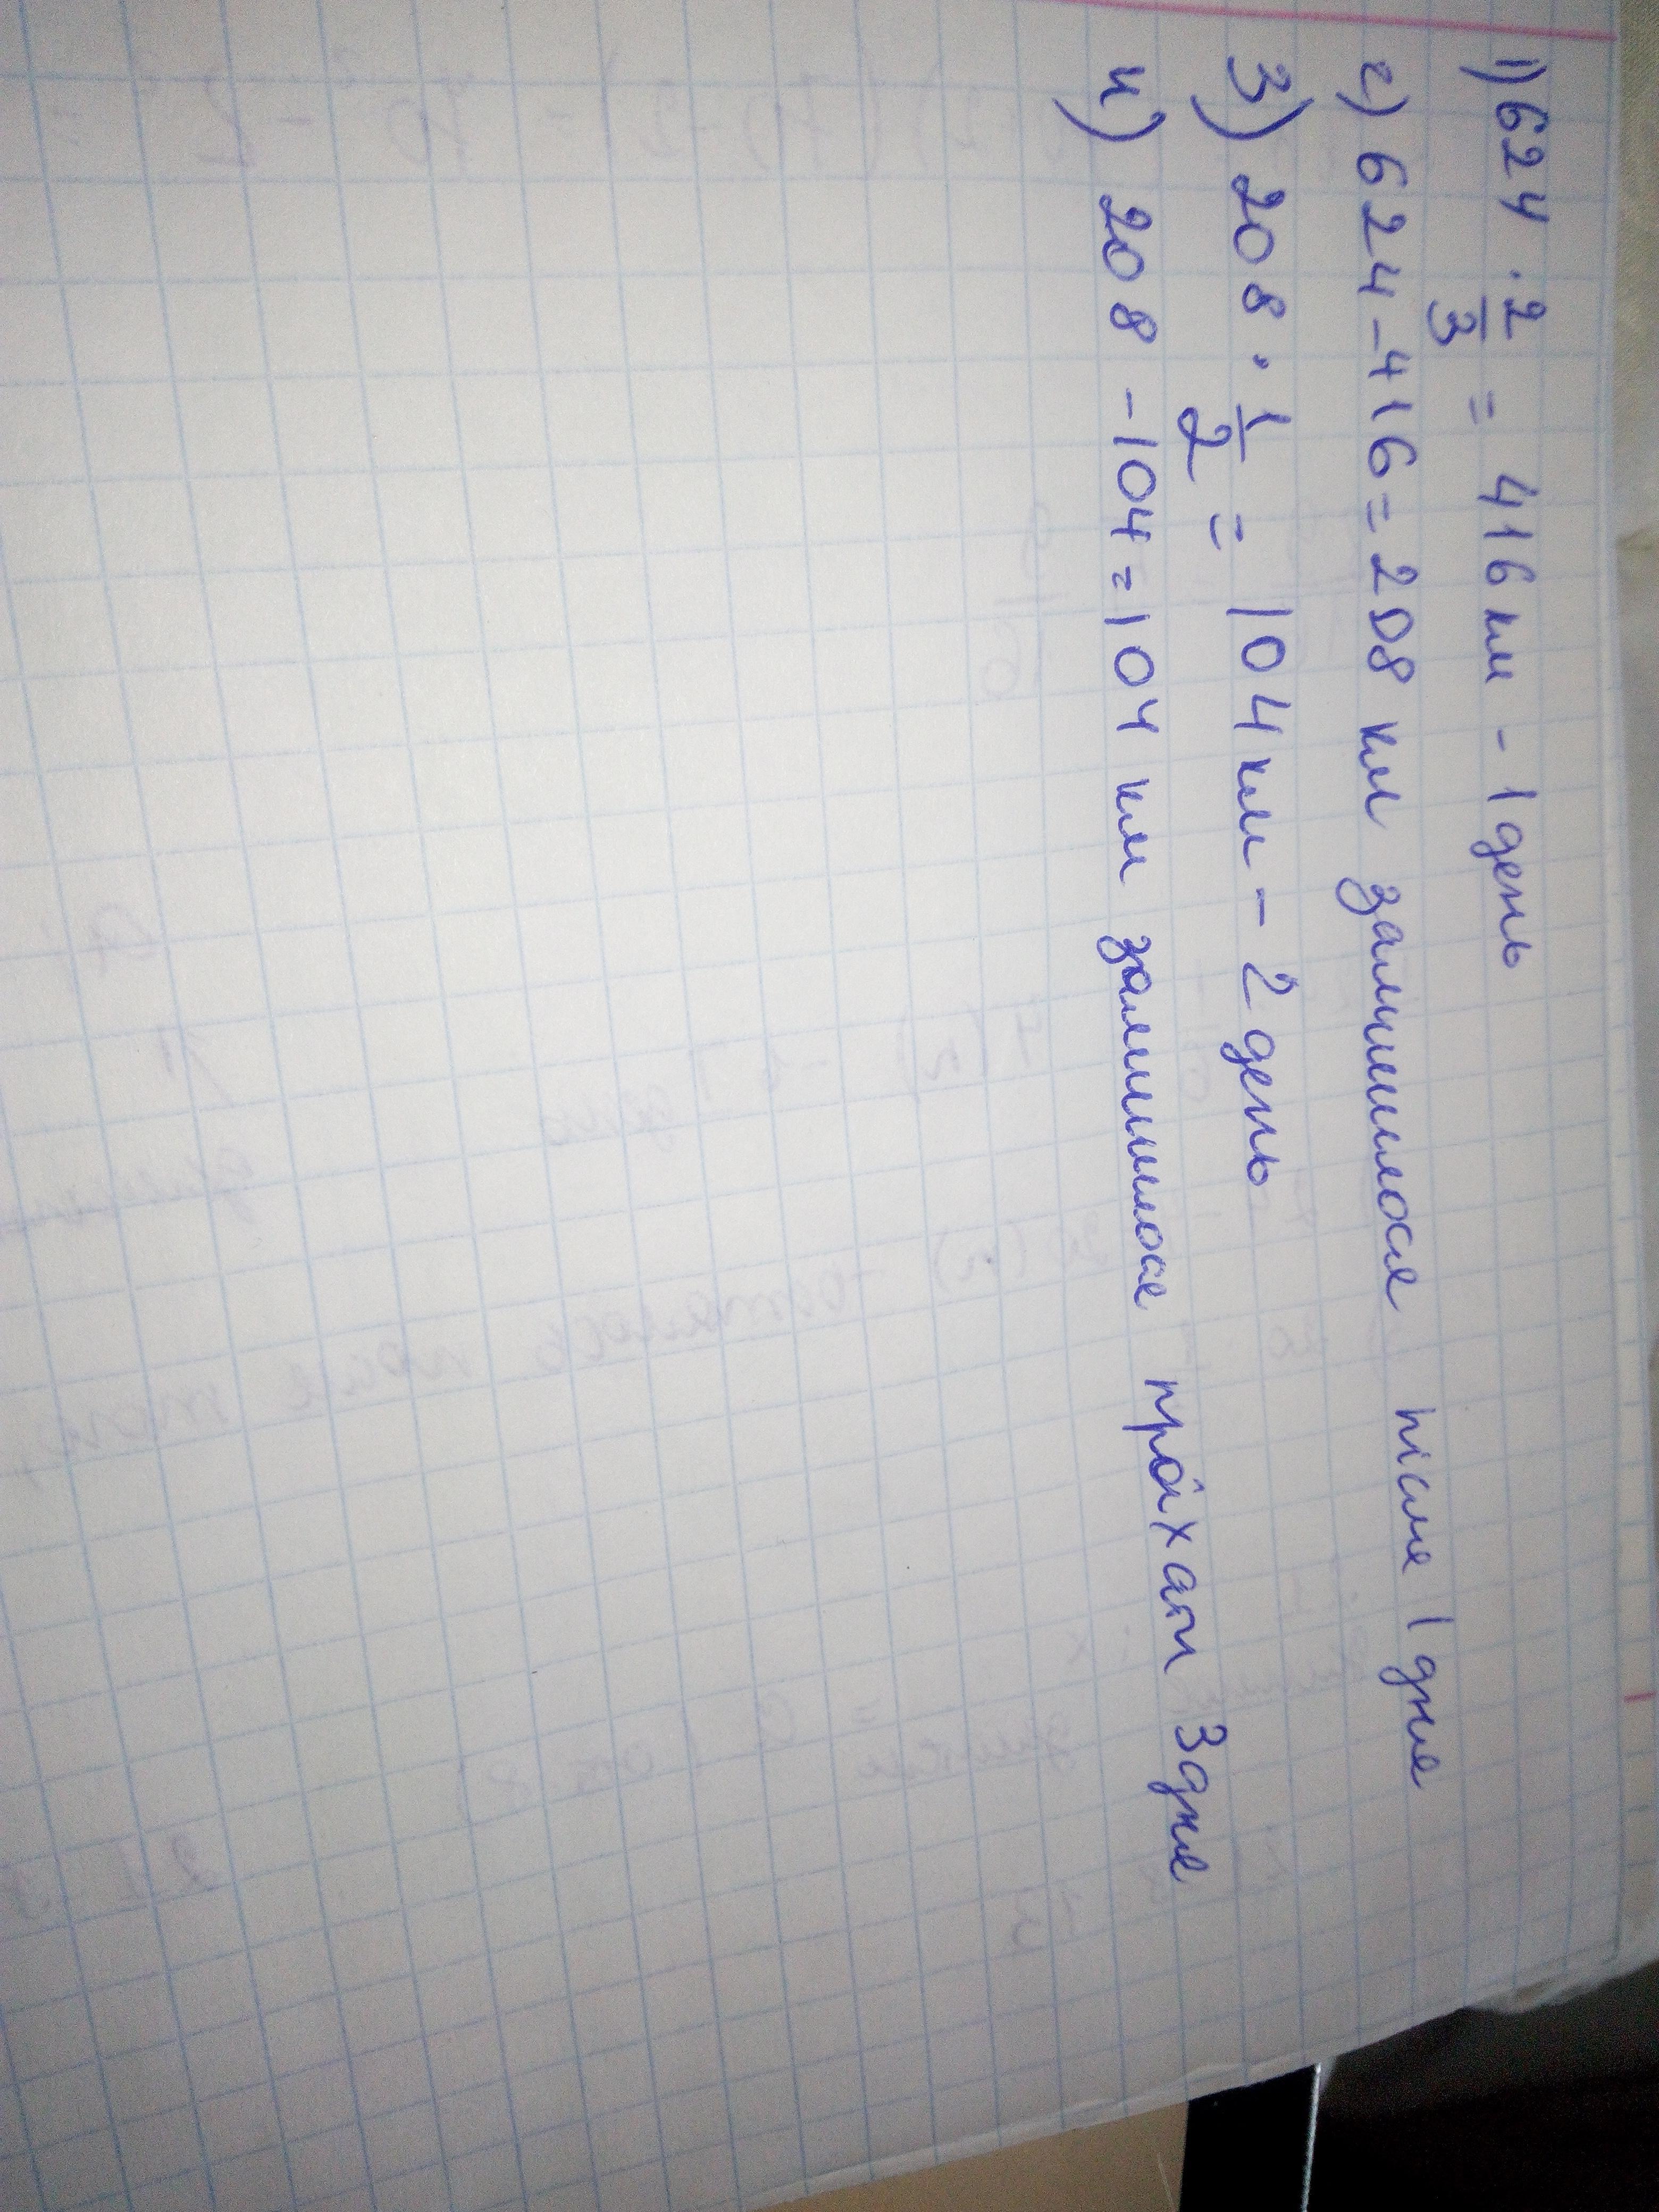 1) 624 · 2/3 = 416 км - 1 день
2) 624 - 416 = 208 км залишилося після 1 дня
3) 208 · 1/2 = 104 км - 2 день
4) 208 - 104 = 104 км залишилося проїхати 3 дня